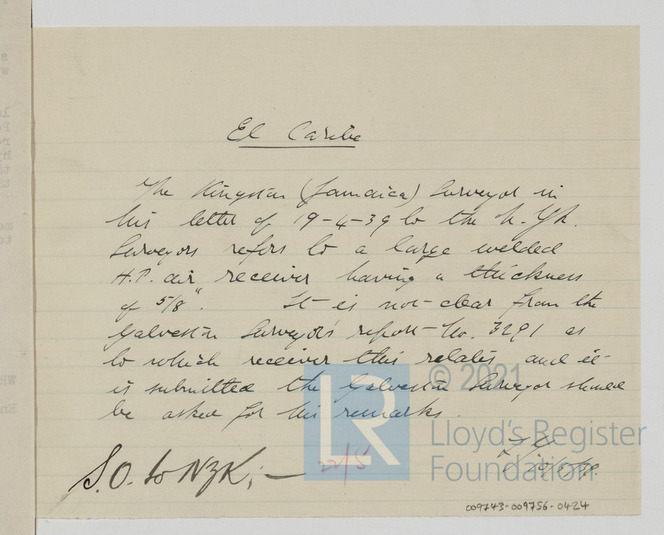 El Caribe
The Kingston (Jamaica) Surveyor in
his letter of 19-4-39 to the N. Yk.
Surveyors refers to a large welded
H.P. air receiver having a thickness
of 5/8". It is not clear from the
Galveston Surveyor's report No. 3291 as
to which receiver this relates and it
is submitted the Galveston Surveyor should
be asked for his remarks.
S.O. to NYK;—
22/5
LR
© 2021
Lloyd's Register
Foundation
009743-009756-0424